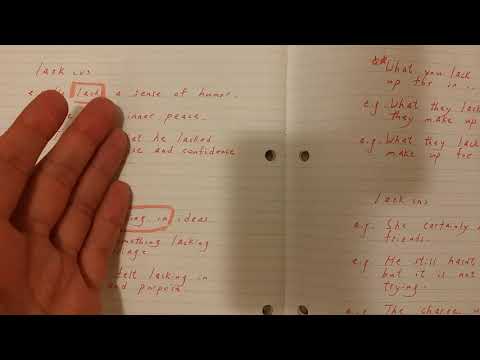 lack (v)
lack a sense of humor.
inner peace.
at he lacked
and confidence
in ideas
something lacking
felt lacking in
and purpose.
What you lack
up for in ...
e.g. What they lack
they make up
e.g. What they lack
make up for
lack (n)
e.g. She certainly
friends.
e.g. He still hasn't
but it is not
trying.
e.g. The charge w